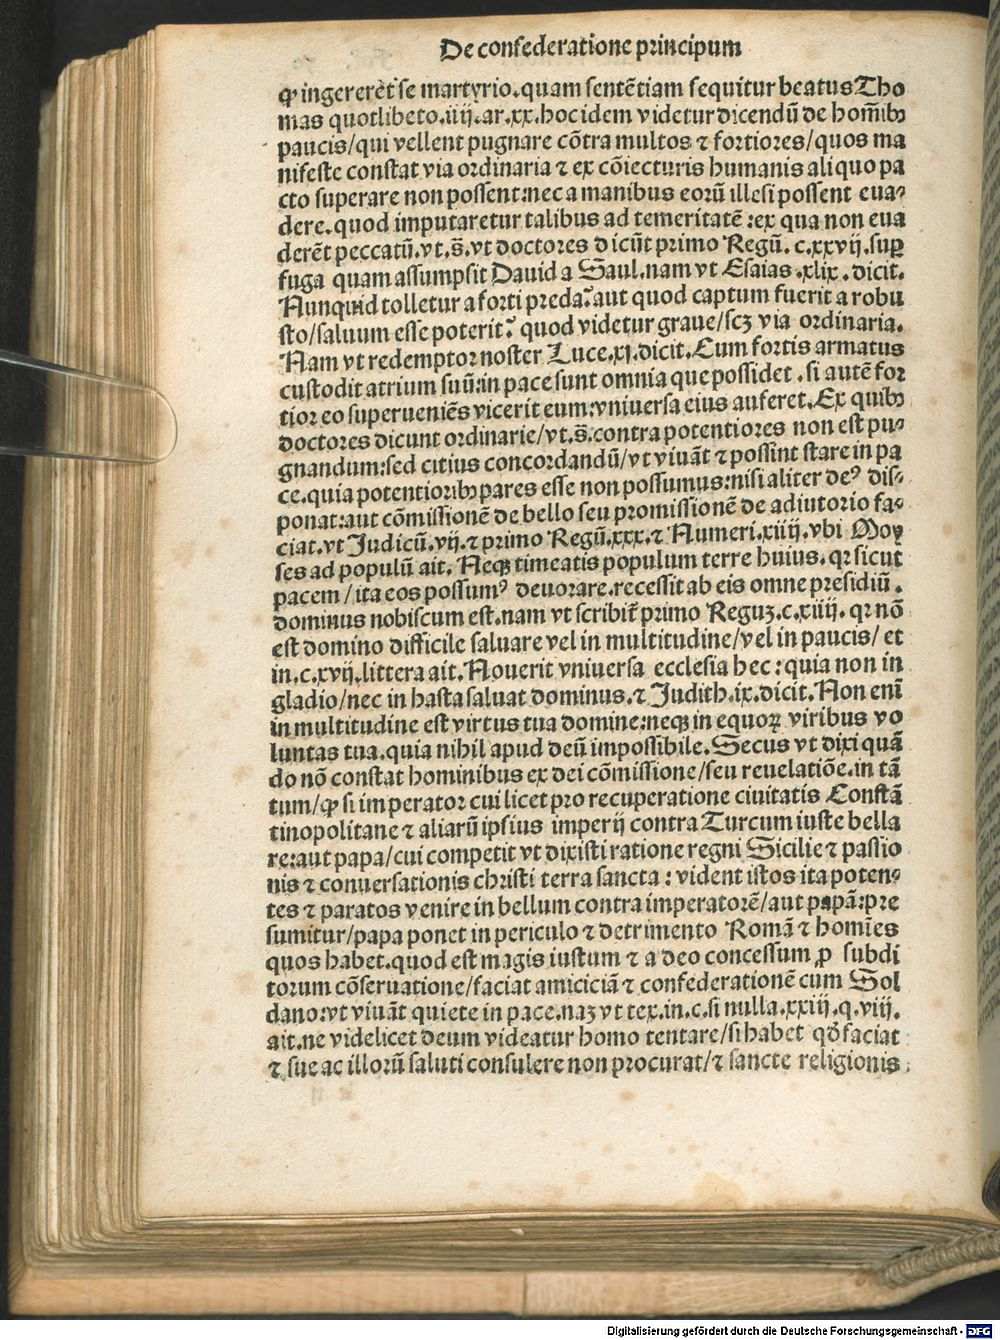 De confederatione principum
ꝙ ingererẽt se martyrio.quam sentẽtiam sequitur beatus Tho
mas quotlibeto.iiij.ar.xx.hoc idem videtur dicendũ de homĩbꝰ
paucis/qui vellent pugnare cõtra multos ⁊ fortiores/quos ma
nifeste constat via ordinaria ⁊ ex cõiecturis humanis aliquo pa
cto superare non possent:nec a manibus eorũ illesi possent eua-
dere.quod imputaretur talibus ad temeritatẽ:ex qua non eua
derẽt peccatũ.vt.s̃.vt doctores dicũt primo Regũ. c.xxvij.suꝑ
fuga quam assumpsit Dauid a Saul.nam vt Esaias .xlix. dicit.
Nunquid tolletur a forti preda?aut quod captum fuerit a robu
sto/saluum esse poterit? quod videtur graue/scꝫ via ordinaria.
Nam vt redemptor noster Luce.xj.dicit.Cum fortis armatus
custodit atrium suũ:in pace sunt omnia que possidet .si autẽ for
tior eo superueniẽs vicerit eum:vniuersa eius auferet.Ex quibꝰ
doctores dicunt ordinarie/vt.s̃.contra potentiores non est pu-
gnandum:sed citius concordandũ/vt viuãt ⁊ possint stare in pa
ce.quia potentioribꝰ pares esse non possumus:nisi aliter deꝰ dis-
ponat:aut cõmissionẽ de bello seu promissionẽ de adiutorio fa-
ciat.vt Judicũ.vij.⁊ primo Regũ.xxx.⁊ Numeri.xiiij.vbi Moy
ses ad populũ ait. Neqꝫ timeatis populum terre huius.qꝛ sicut
pacem/ita eos possumꝰ deuorare.recessit ab eis omne presidiũ.
dominus nobiscum est.nam vt scribit̃ primo Reguꝫ.c.xiiij. qꝛ nõ
est domino difficile saluare vel in multitudine/vel in paucis/ et
in.c.xvij.littera ait.Nouerit vniuersa ecclesia hec:quia non in
gladio/nec in hasta saluat dominus.⁊ Judith.ix.dicit.Non enĩ
in multitudine est virtus tua domine:neqꝫ in equoꝝ viribus vo
luntas tua.quia nihil apud deũ impossibile.Secus vt dixi quã
do nõ constat hominibus ex dei cõmissione/seu reuelatiõe.in tã
tum/ꝙ si imperator cui licet pro recuperatione ciuitatis Constã
tinopolitane ⁊ aliarũ ipsius imperij contra Turcum iuste bella
re:aut papa/cui competit vt dixisti ratione regni Sicilie ⁊ passio
nis ⁊ conuersationis christi terra sancta:vident istos ita poten-
tes ⁊ paratos venire in bellum contra imperatorẽ/aut papã:pre
sumitur/papa ponet in periculo ⁊ detrimento Romã ⁊ homĩes
quos habet.quod est magis iustum ⁊ a deo concessum ꝓ subdi
torum cõseruatione/faciat amiciciã ⁊ confederationẽ cum Sol
dano:vt viuãt quiete in pace.naꝫ vt tex.in.c.si nulla.xxiij.q.viij.
ait.ne videlicet deum videatur homo tentare/si habet qð faciat
⁊ sue ac illorũ saluti consulere non procurat/⁊ sancte religionis
Digitalisierung gefördert durch die Deutsche Forschungsgemeinschaft - DFG